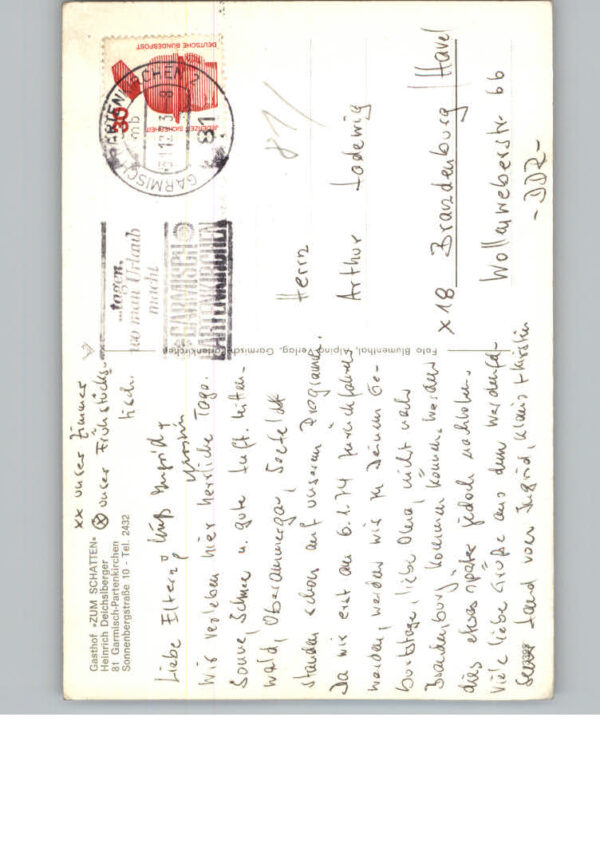 Gasthof »ZUM SCHATTEN«
Heinrich Deichslberger
81 Garmisch-Partenkirchen
Sonnenbergstraße 10 - Tel. 2432
xx unser Zimmer
⊗ unser Frühstücks-
tisch.
Liebe Eltern,
Wir verleben hier herrliche Tage.
Sonne, Schnee u. gute Luft. Mitten-
wald, Oberammergau, Seefeld
standen schon auf unserem Programm.
Da wir erst am 6.1.74 zurückfahren
werden, werden wir zu Deinem Ge-
burtstage, liebe Oma, nicht nach
Brandenburg kommen können, werden
dies etwas später jedoch nachholen.
Viele liebe Grüße aus dem Werdenfel-
ser Land von Ingrid, Klaus + Kirstin
Foto Blumenthal, Alpina-Verlag, Garmisch-Partenkirchen
...tagen,
wo man Urlaub
macht
GARMISCH
PARTENKIRCHEN
GARMISCH-PARTENKIRCHEN 1
31.12.73
mb
81
DEUTSCHE BUNDESPOST
JEDERZEIT SICHERHEIT
30
81/
Herrn
Arthur Ladewig
x 18 Brandenburg / Havel
Wollenweberstr. 66
- DDR -